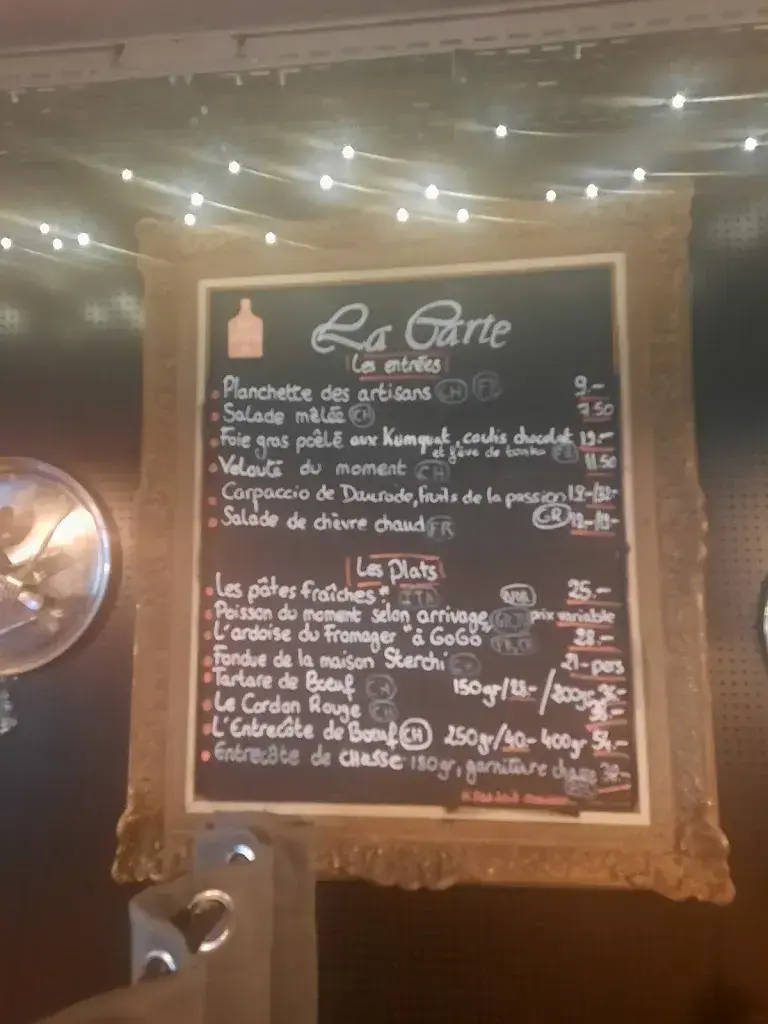 La Carte
Les entrées
Planchette des artisans CH FR 9.-
Salade mêlée CH 7.50
Foie gras poêlé aux Kumquat, coulis chocolat 19.-
et fève de tonka FR
Velouté du moment CH 11.50
Carpaccio de Daurade, Fruits de la passion
Salade de chèvre chaud FR GR
Les Plats
Les pâtes fraîches* ITA 25.-
Poisson du moment selon arrivage prix variable
L'ardoise du Fromager "à GoGo" 28.-
Fondue de la maison Sterchi CH 21.-pers
Tartare de Bœuf CH 150gr/28.-/200gr
Le Cordon Rouge CH 38.-
L'Entrecôte de Bœuf CH 250gr/40.- 400gr 54.-
Entrecôte de chasse 180gr, garniture chasse